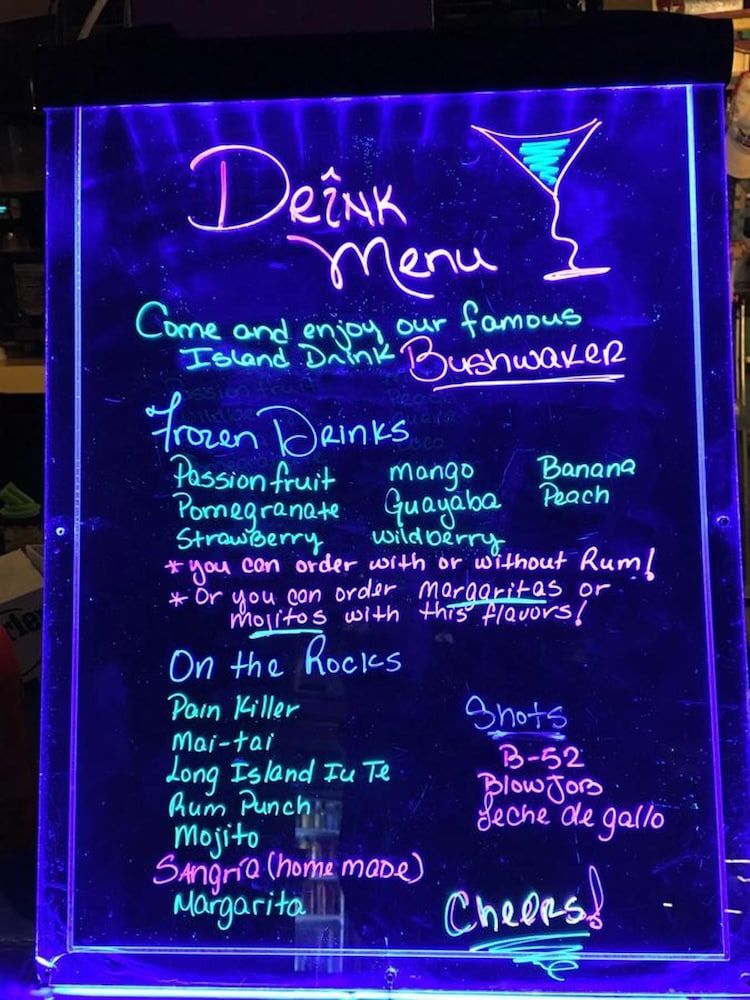 Drink
Menu
Come and enjoy our famous
Island Drink Bushwaker
Frozen Drinks
Passion fruit mango Banana
Pomegranate Guayaba Peach
Strawberry wildberry
* you can order with or without Rum!
* Or you can order margaritas or
mojitos with this flavors!
On the Rocks
Pain Killer
Mai-tai
Long Island Iu Te
Rum Punch
Mojito
Sangría (home made)
Margarita
Shots
B-52
Blow Job
Leche de gallo
Cheers!